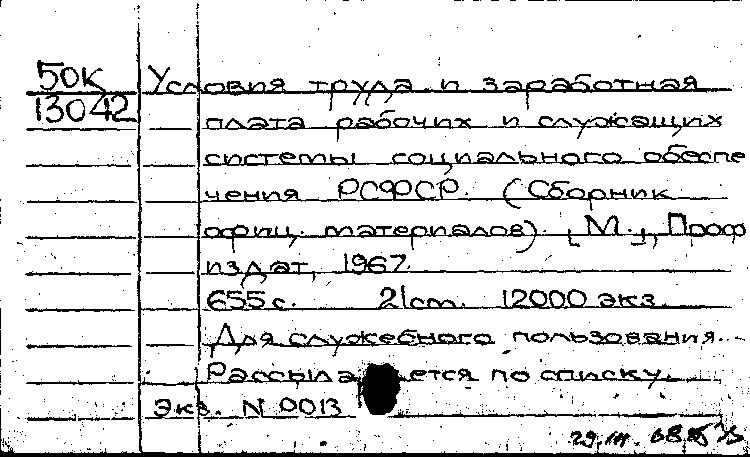 50К Условия труда и заработная
13042 плата рабочих и служащих
системы социального обеспе
чения РСФСР. (Сборник
офиц. материалов). [М.], Проф
издат, 1967.
655 с. 21 cm. 12000 экз.
Для служебного пользования.
Рассылается по списку.
Экз. N 0013
29.III.68